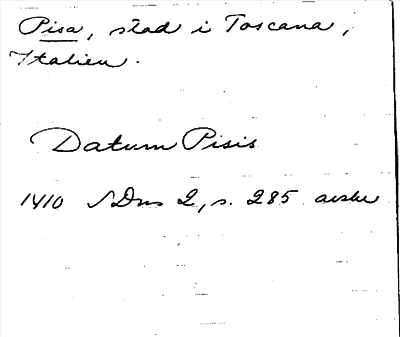 Pisa, stad i Toscana,
Italien.
Datum Pisis
1410 SDns 2, s. 285